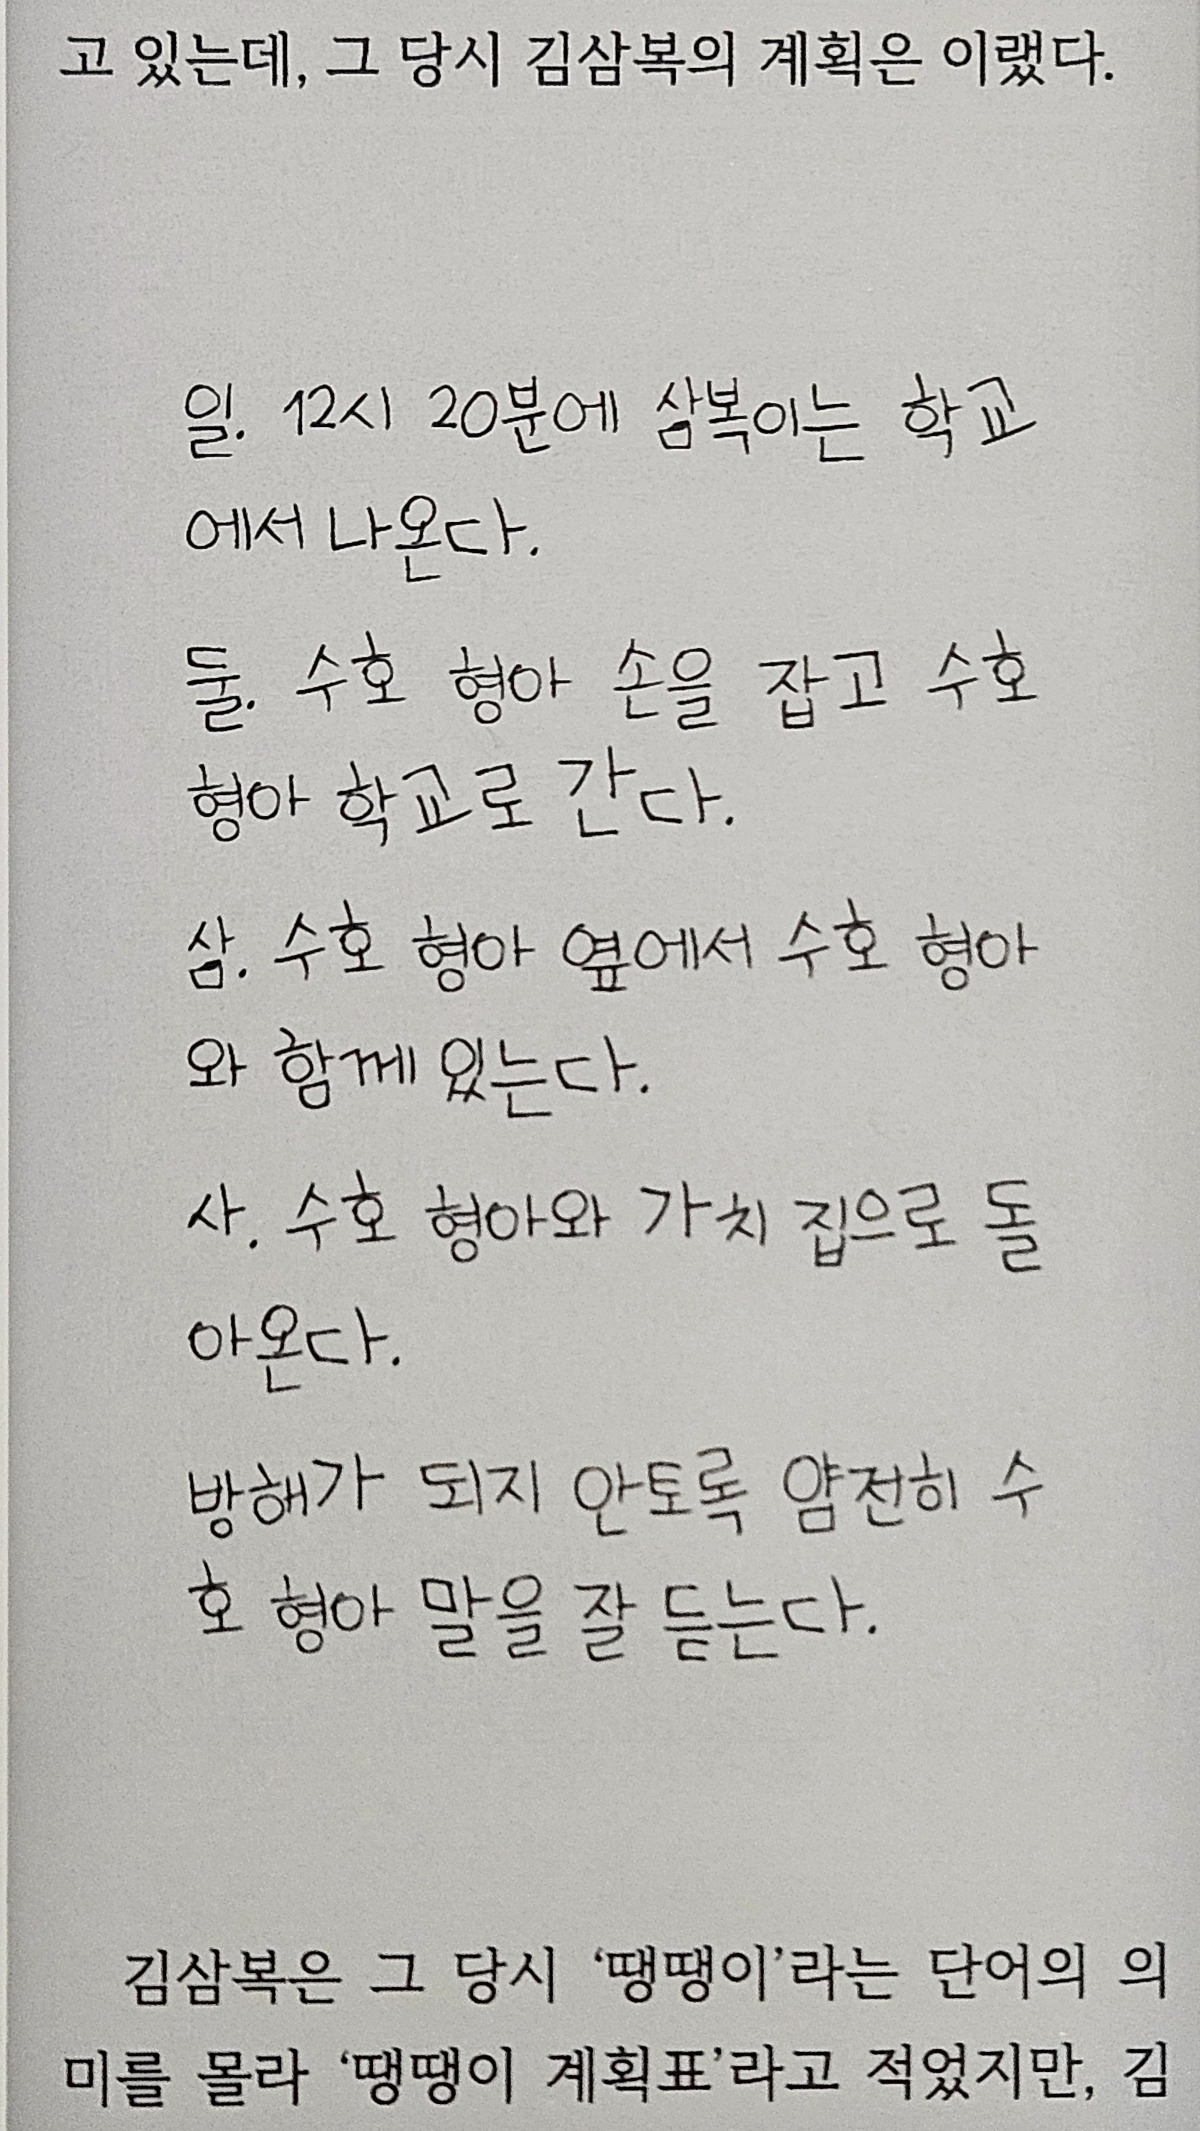 고 있는데, 그 당시 김삼복의 계획은 이랬다.
일. 12시 20분에 삼복이는 학교
에서 나온다.
둘. 수호 형아 손을 잡고 수호
형아 학교로 간다.
삼. 수호 형아 옆에서 수호 형아
와 함께 있는다.
사. 수호 형아와 가치 집으로 돌
아온다.
방해가 되지 안토록 얌전히 수
호 형아 말을 잘 듣는다.
김삼복은 그 당시 ‘땡땡이’라는 단어의 의
미를 몰라 ‘땡땡이 계획표’라고 적었지만, 김